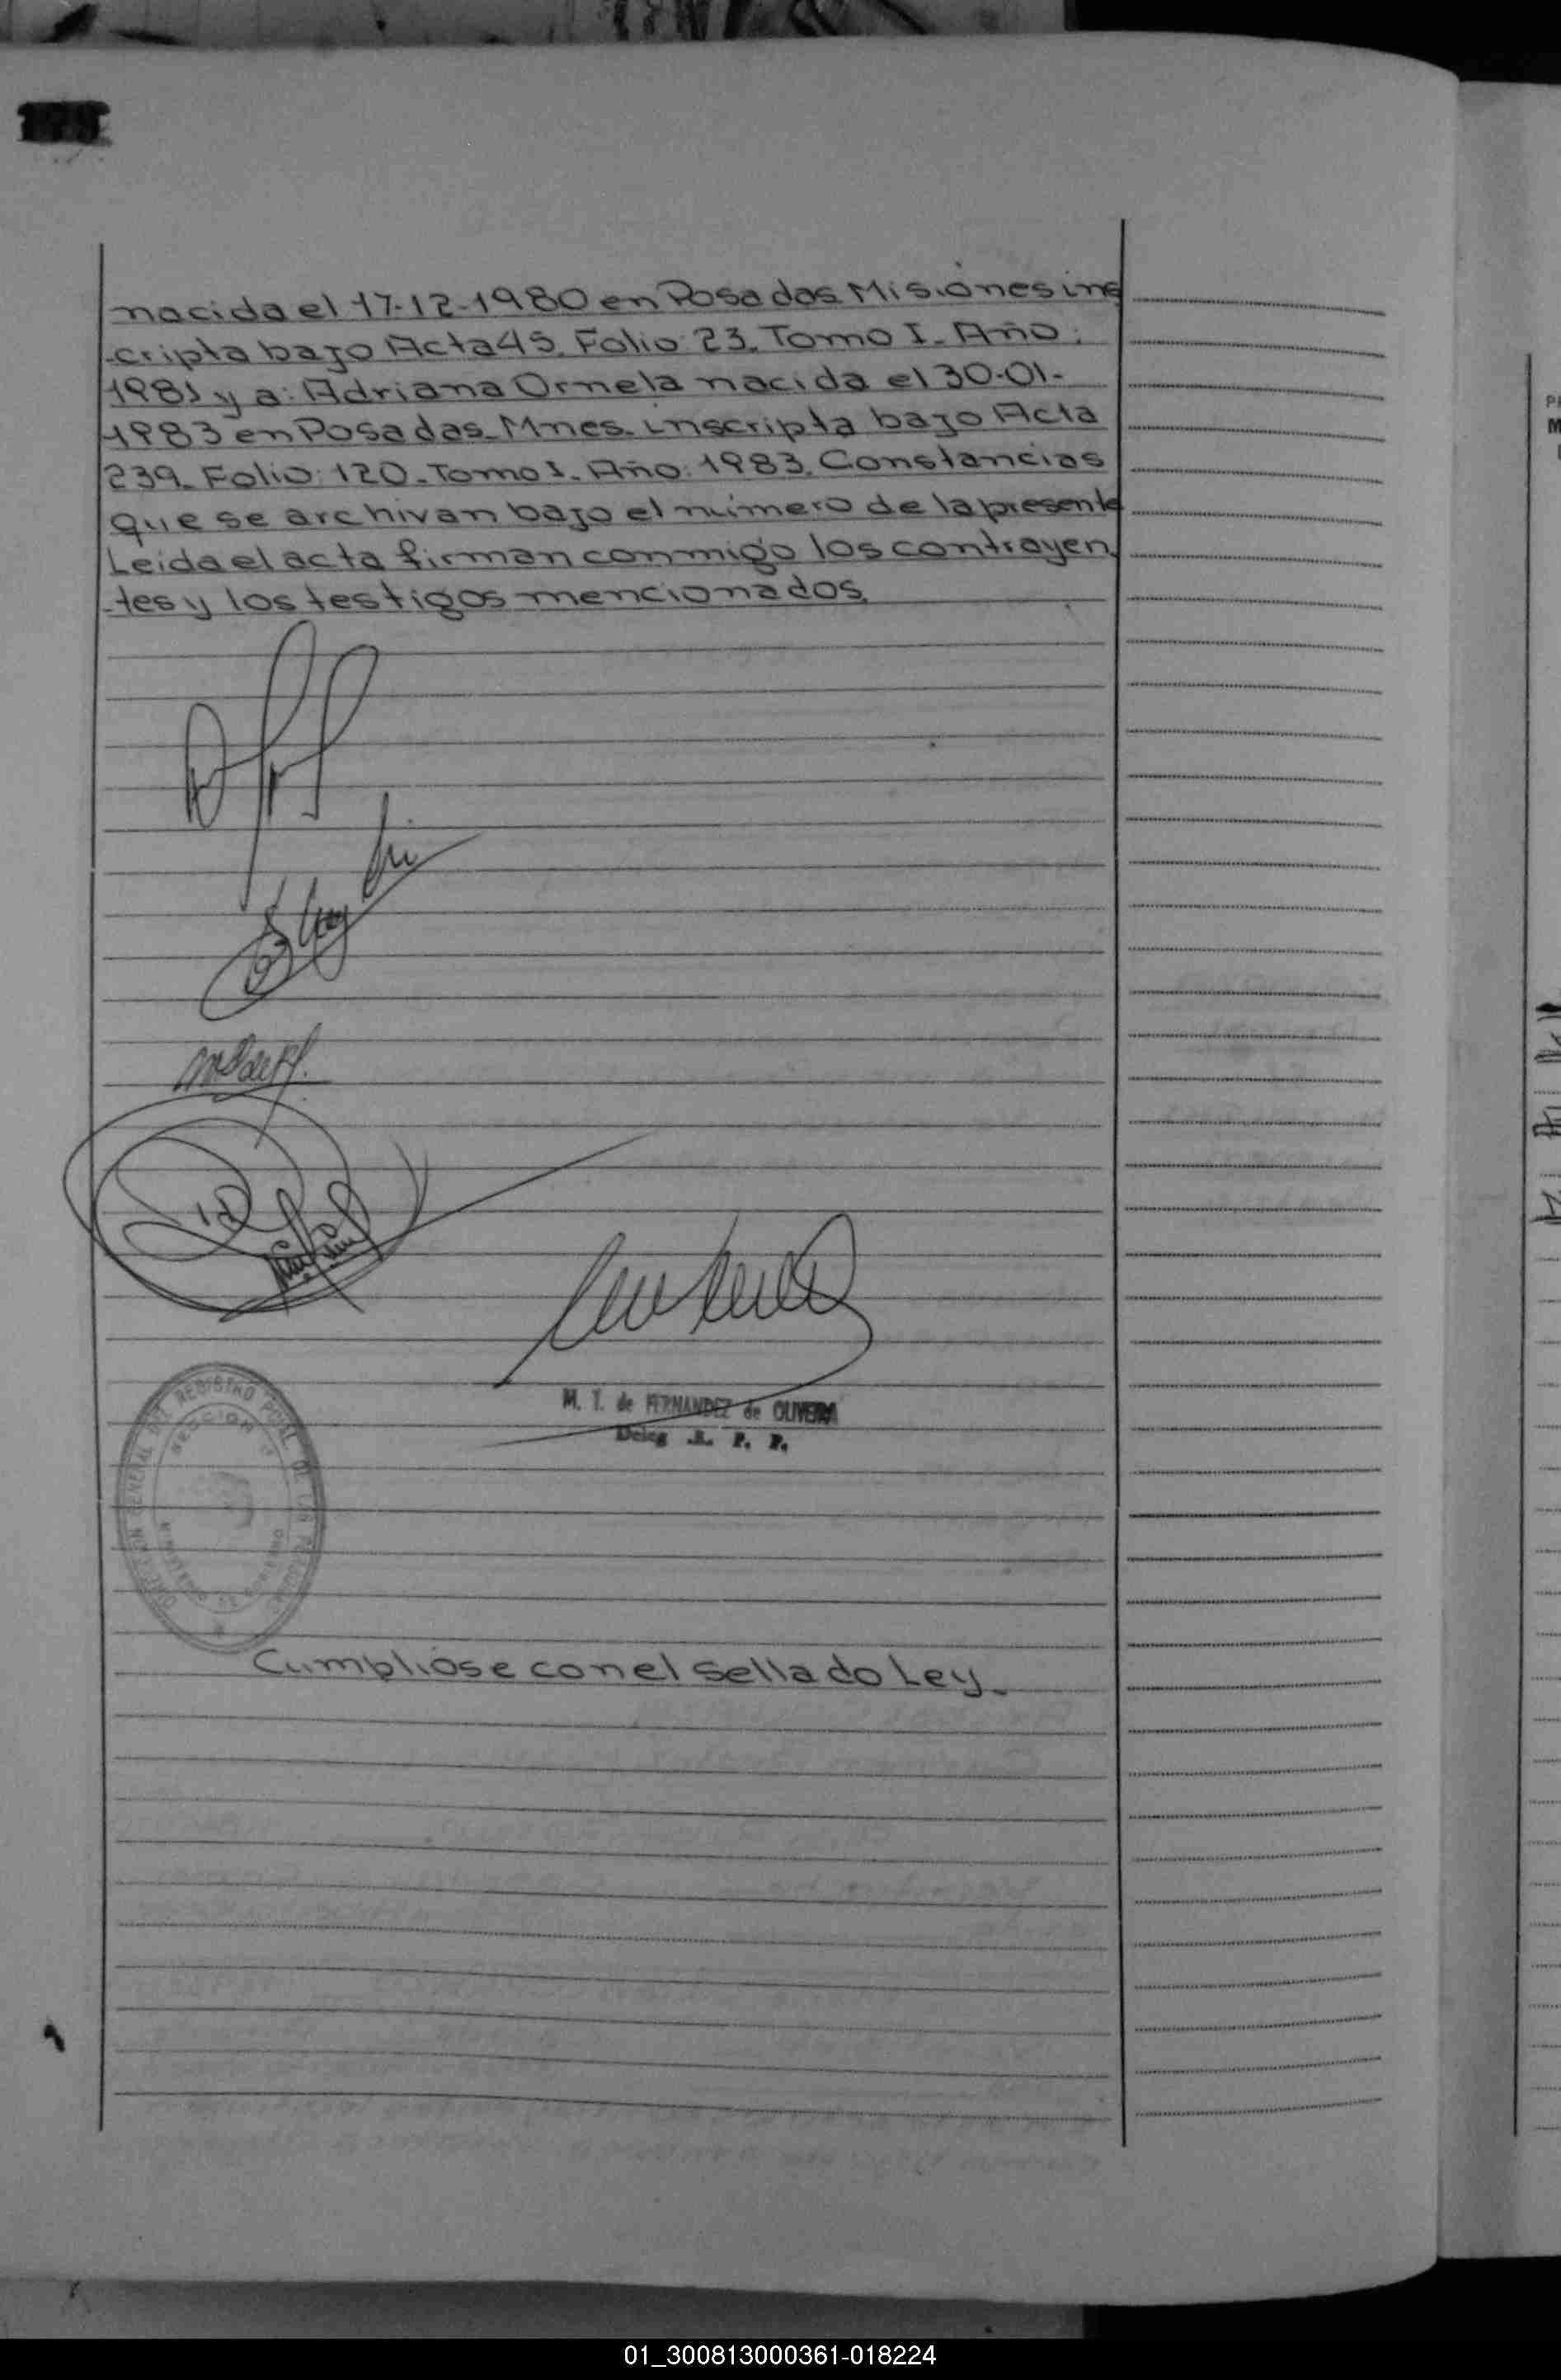 nacida el 17-12-1980 en Posadas Misiones ins
-cripta bajo Acta 45. Folio: 23. Tomo I. Año:
1981 y a: Adriana Ornela nacida el 30-01-
1983 en Posadas. Mnes. inscripta bajo Acta
239. Folio: 120. Tomo I. Año: 1983. Constancias
que se archivan bajo el número de la presente
Leida el acta firman conmigo los contrayen
-tes y los testigos mencionados.
M. T. de FERNANDEZ de OLIVEIRA
Deleg .R. P. P.
DIRECCION GENERAL DEL REGISTRO PCIAL DE LAS PERSONAS
SECCION
MINISTERIO DE GOBIERNO
Cumpliose con el sellado Ley.
01_300813000361-018224